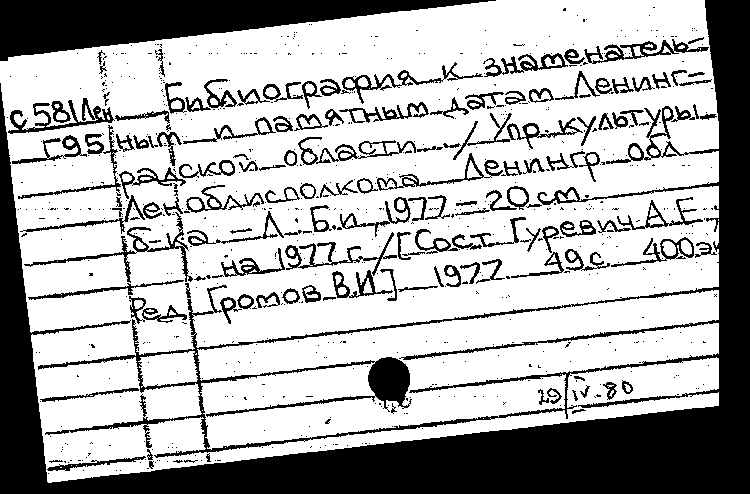 Библиография к знаменатель-
С 581 Лен. ным и памятным датам Ленинг-
Г95 радской области / Упр. культуры
Леноблисполкома Ленингр обл
б-ка. – Л: Б.и, 1977 – 20 см.
на 1977 г. / [Сост Гуревич А.Е.;
Ред. Громов В.И] 1977 49 с. 400 эк
29/IV-80